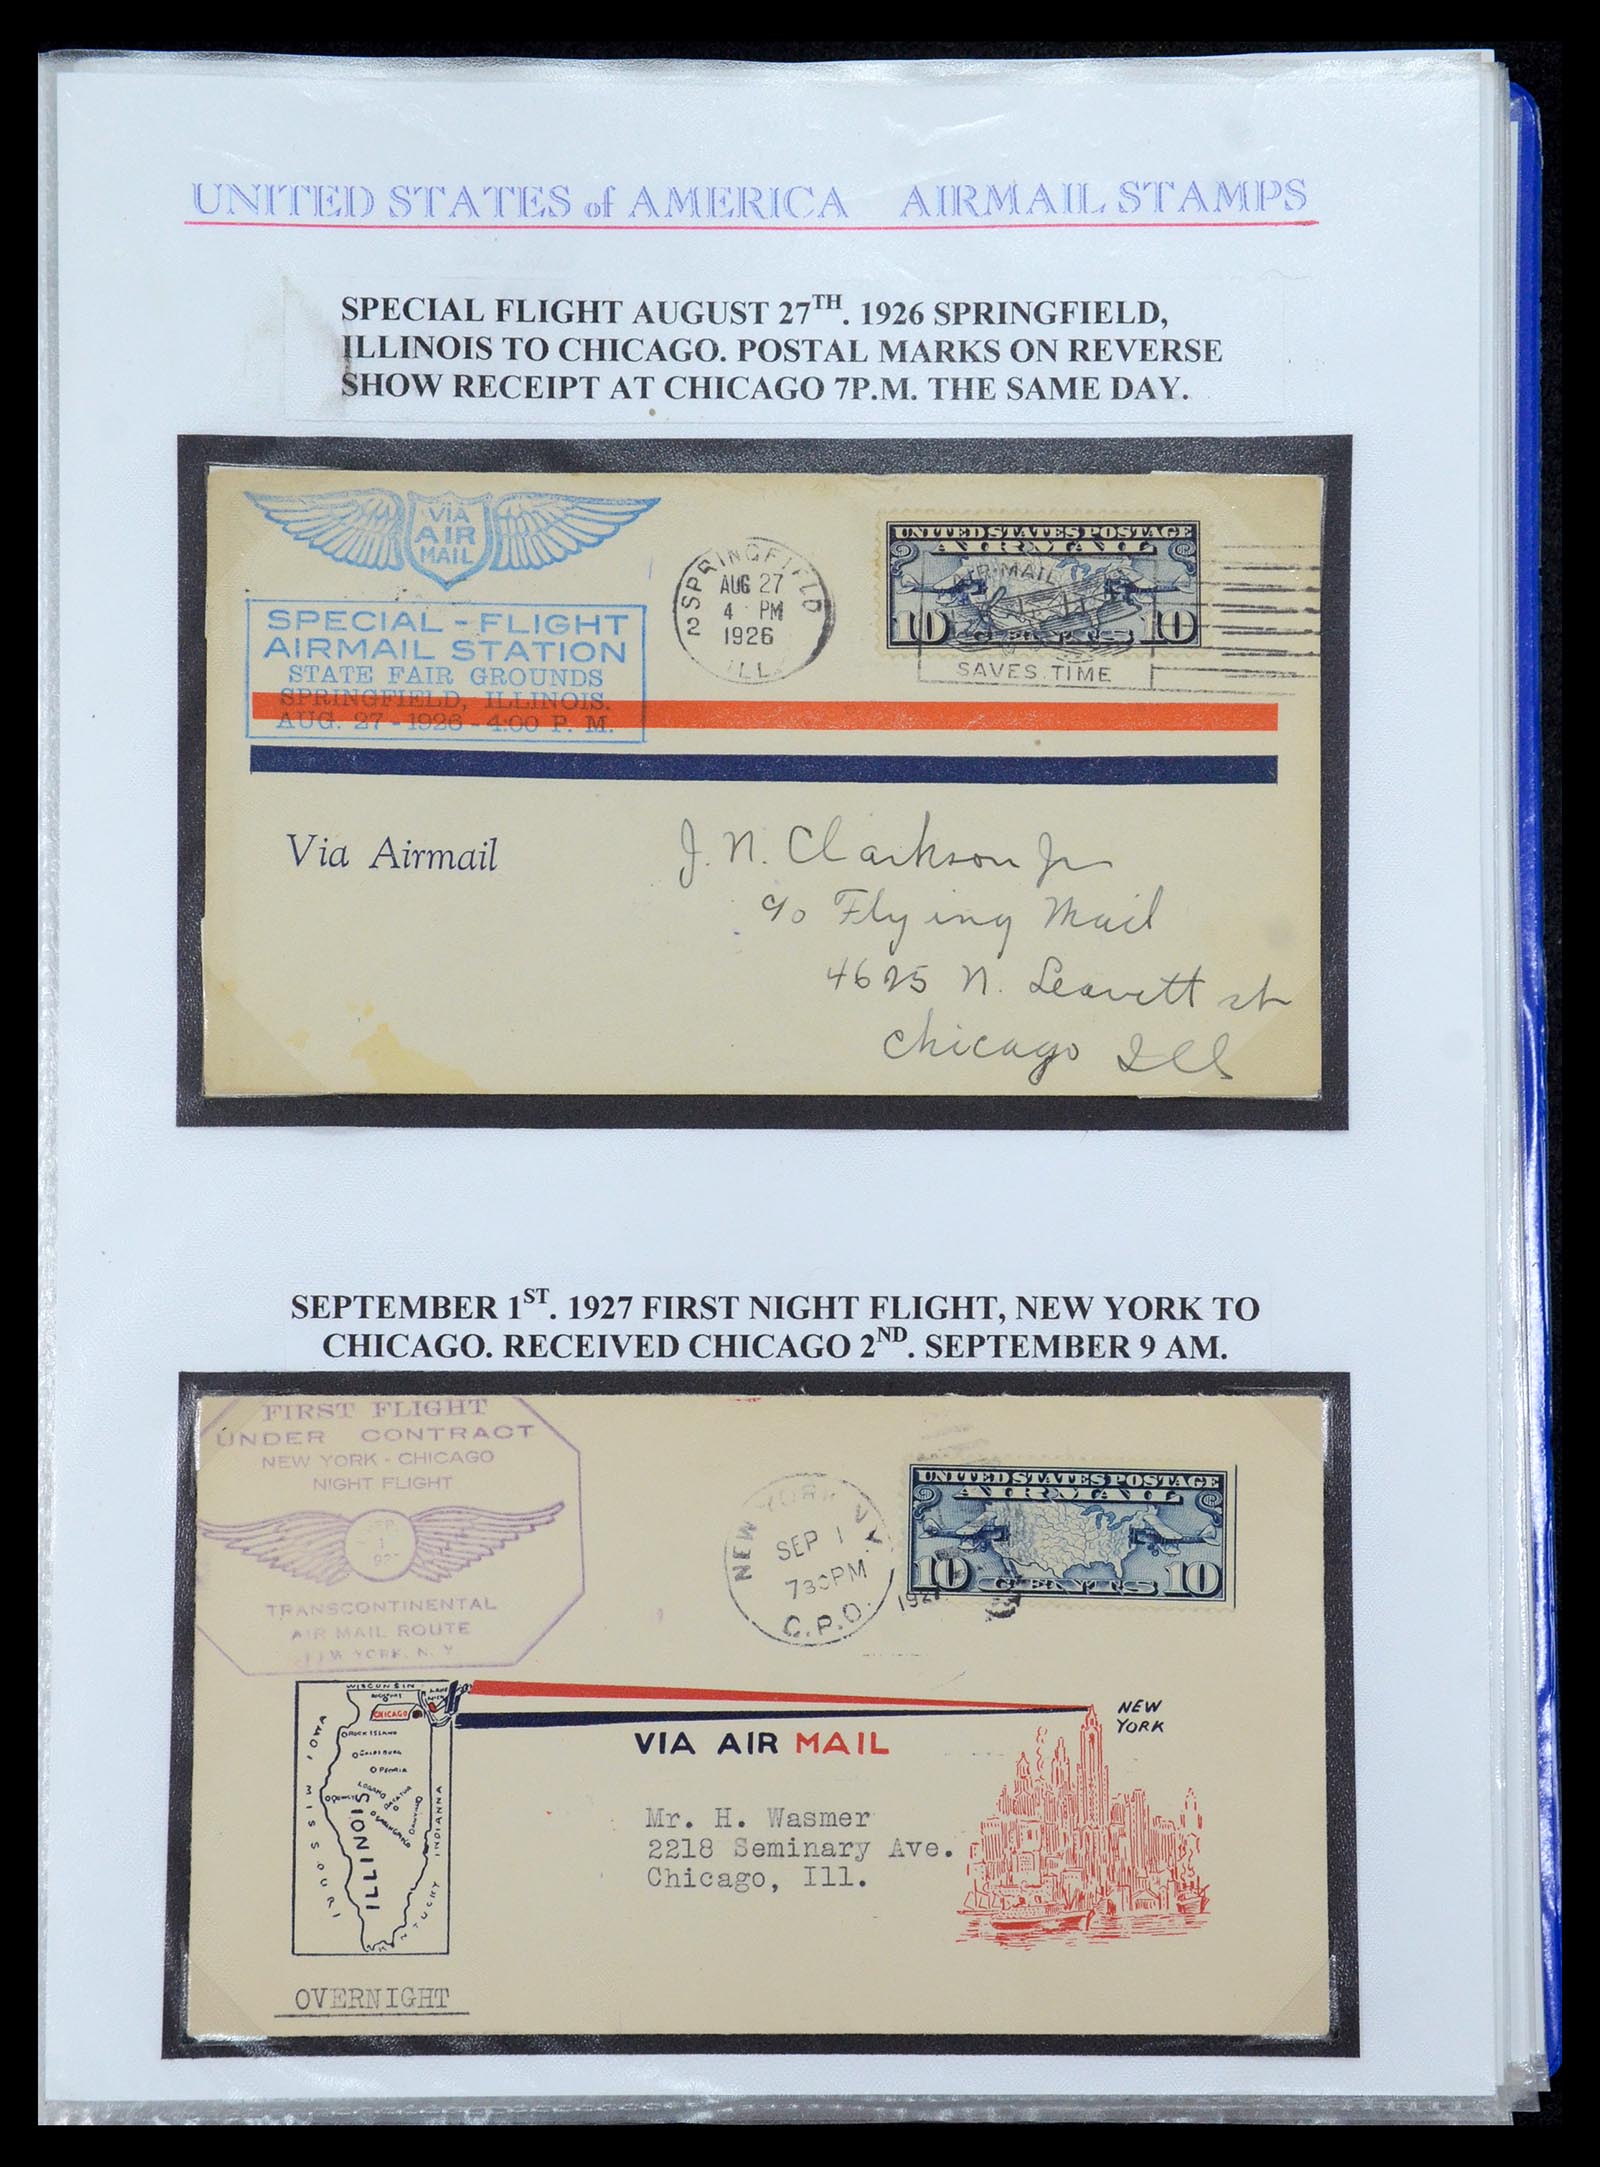 UNITED STATES of AMERICA AIRMAIL STAMPS
SPECIAL FLIGHT AUGUST 27TH. 1926 SPRINGFIELD,
ILLINOIS TO CHICAGO. POSTAL MARKS ON REVERSE
SHOW RECEIPT AT CHICAGO 7P.M. THE SAME DAY.
VIA
AIR
MAIL
SPECIAL - FLIGHT
AIRMAIL STATION
STATE FAIR GROUNDS
SPRINGFIELD, ILLINOIS.
AUG. 27 - 1926 - 4:00 P. M.
SPRINGFIELD 2
AUG 27
4 PM
1926
ILL.
UNITED STATES POSTAGE
AIR MAIL
10 CENTS 10
AIR MAIL
SAVES TIME
Via Airmail
J. N. Clarkson Jr
c/o Flying Mail
4625 N. Leavitt st
Chicago Ill
SEPTEMBER 1ST. 1927 FIRST NIGHT FLIGHT, NEW YORK TO
CHICAGO. RECEIVED CHICAGO 2ND. SEPTEMBER 9 AM.
FIRST FLIGHT
UNDER CONTRACT
NEW YORK - CHICAGO
NIGHT FLIGHT
SEP
1
1927
TRANSCONTINENTAL
AIR MAIL ROUTE
NEW YORK, N. Y.
NEW YORK N.Y.
SEP 1
730PM
G.P.O.
1927
UNITED STATES POSTAGE
AIR MAIL
10 CENTS 10
WISCONSIN
LAKE
MICH
ROCKFORD
CHICAGO
ROCK ISLAND
GALESBURG
PEORIA
QUINCY
DECATUR
SPRINGFIELD
DANVILLE
ILLINOIS
IOWA
MISSOURI
INDIANNA
KENTUCKY
NEW
YORK
VIA AIR MAIL
Mr. H. Wasmer
2218 Seminary Ave.
Chicago, Ill.
OVERNIGHT